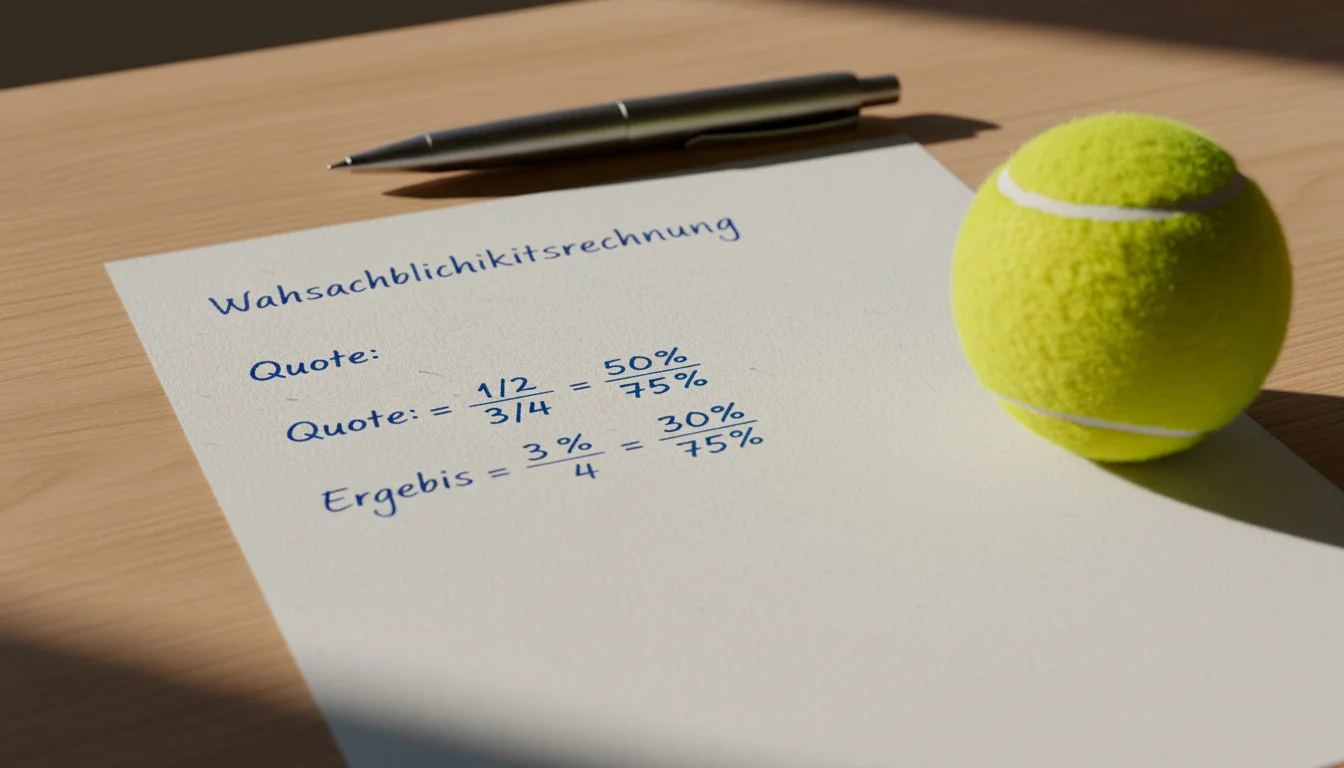 Wahsachblichikitsrechnung
Quote:
Quote: = 1/2 / 3/4 = 50% / 75%
Ergebis = 3% / 4 = 30% / 75%